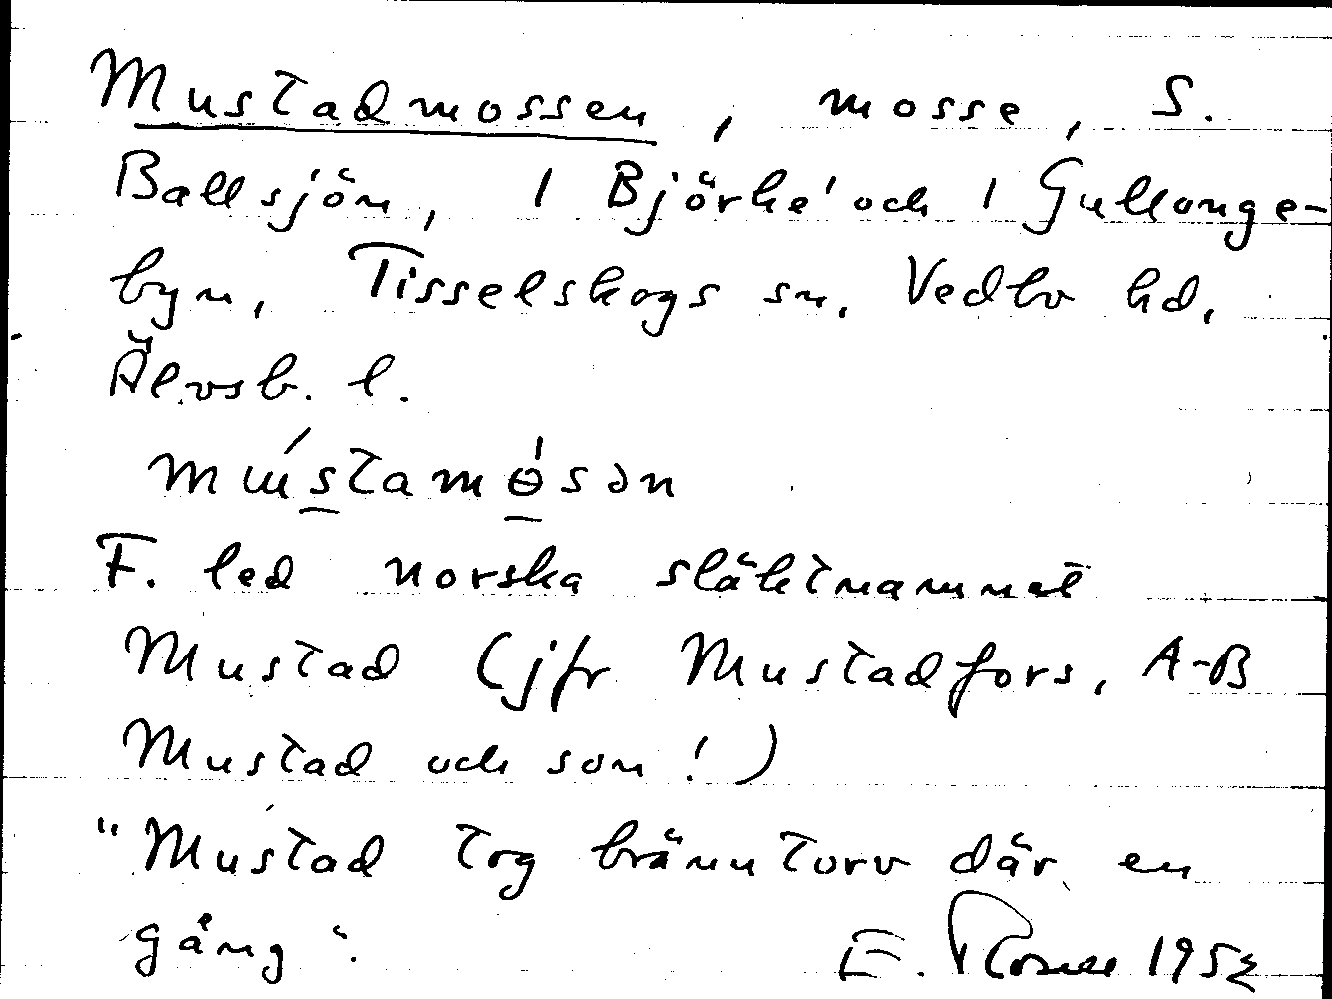 Mustadmossen, mosse, S.
Ballsjön, 1 Björke' och 1 Gullonge-
byn, Tisselskogs sn, Vedbo hd,
Älvsb. l.
F. led norska släktnamnet
Mustad (jfr Mustadfors, A-B
Mustad och son!)
"Mustad tog bränntorv där en
gång".
E. 195